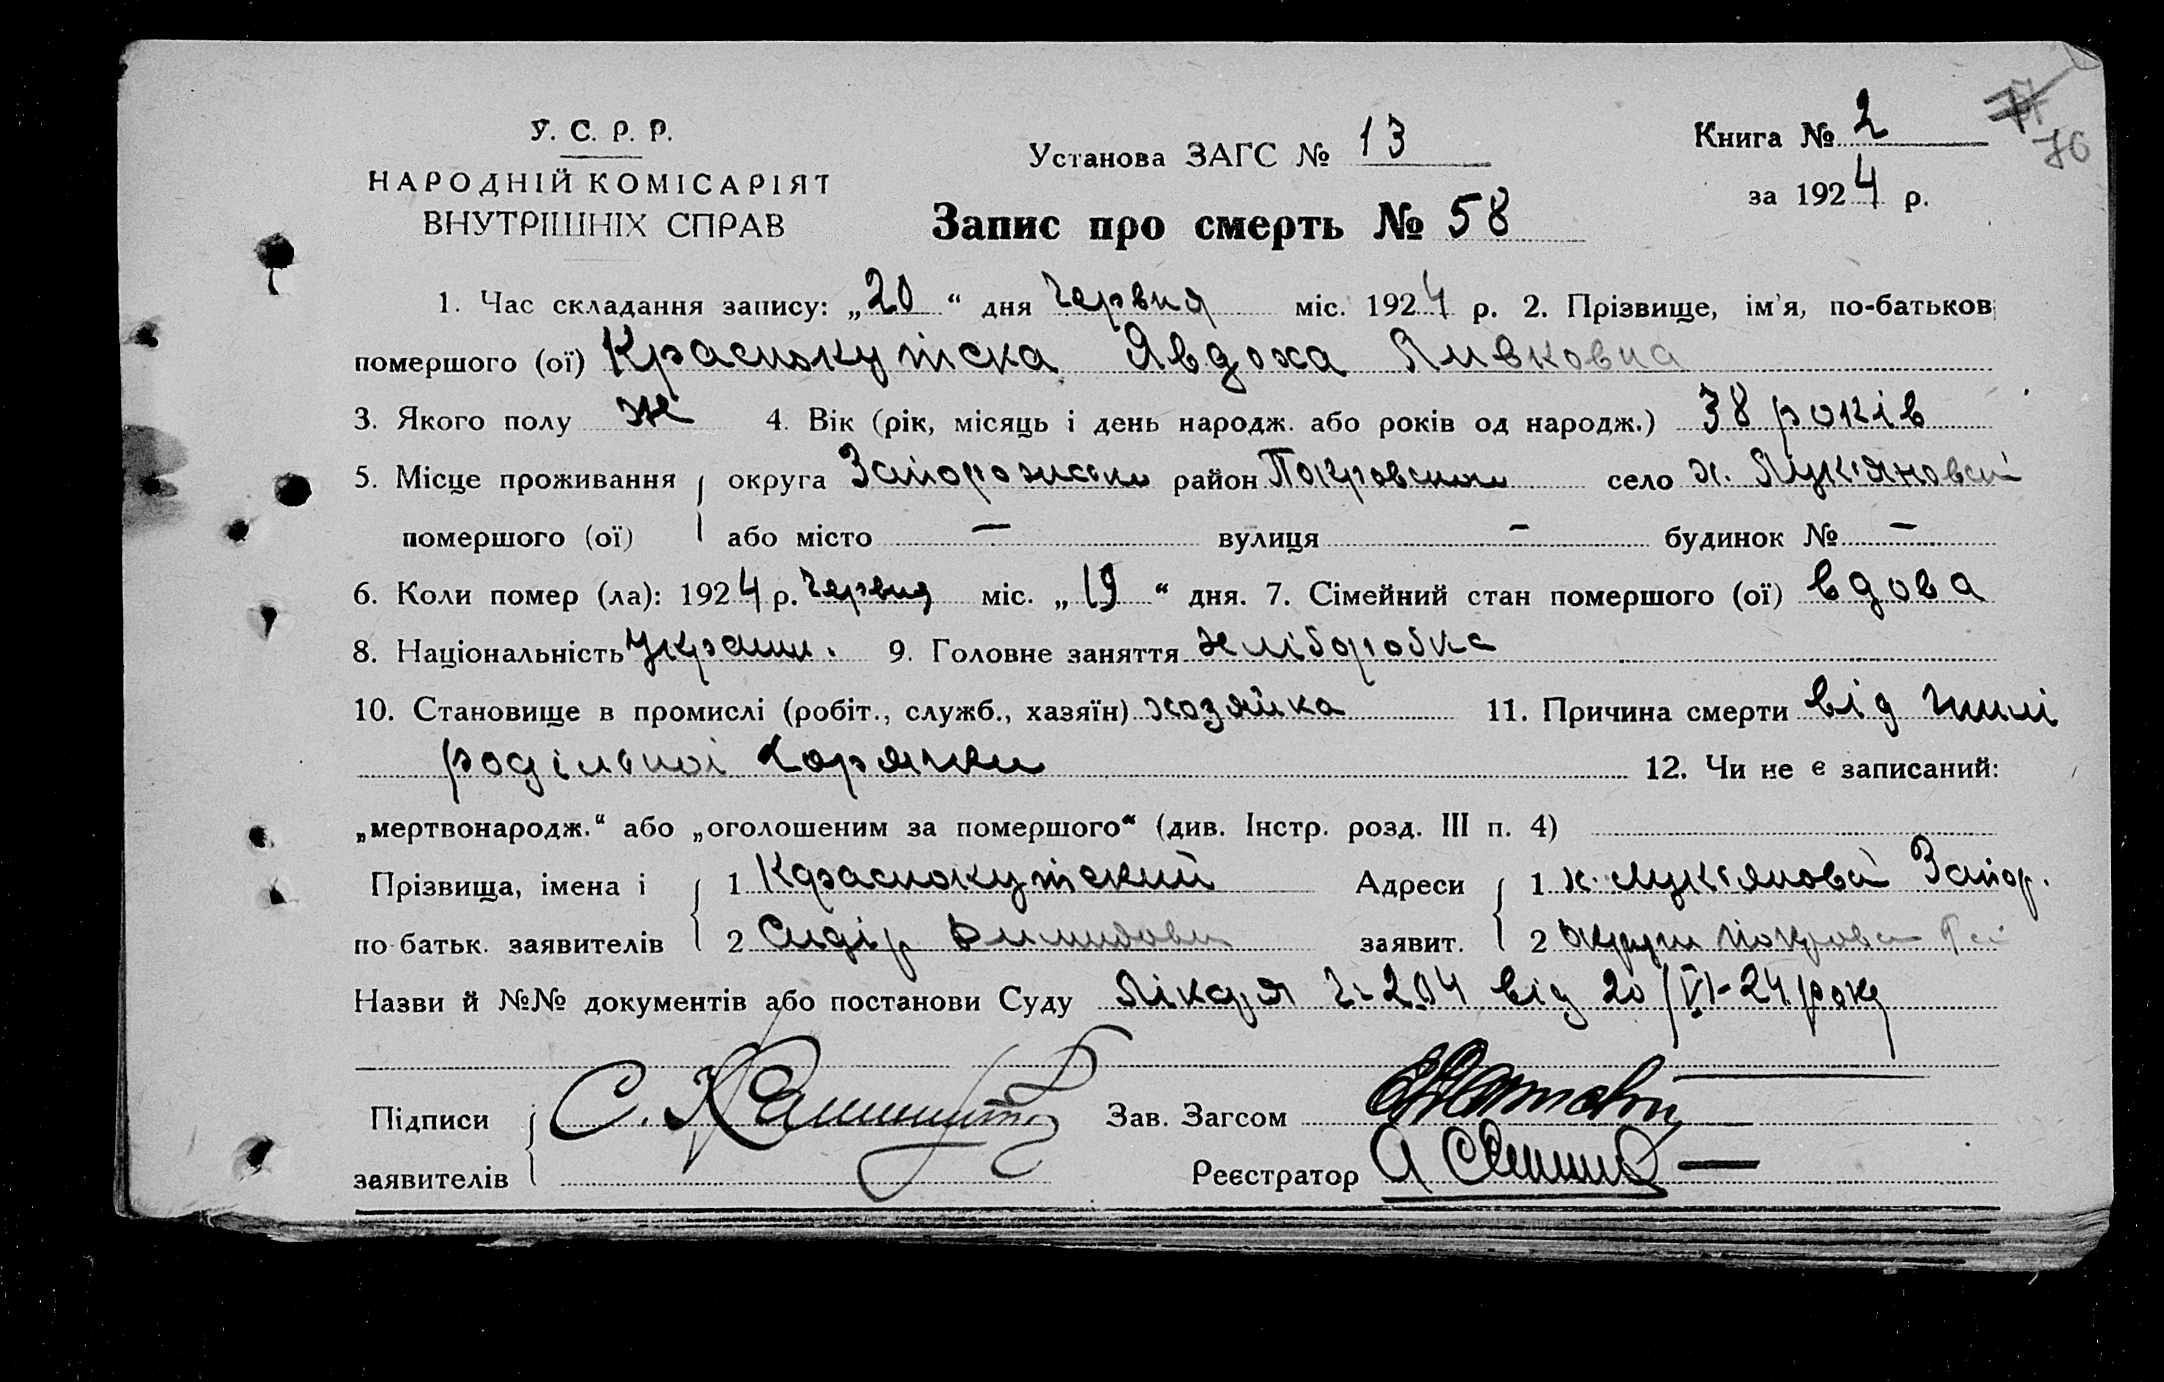 У. С. Р. Р.
НАРОДНІЙ КОМІСАРІЯТ
ВНУТРІШНІХ СПРАВ
Установа ЗАГС № 13
Книга № 2
за 1924 р.
76
Запис про смерть № 58
1. Час складання запису: „20“ дня червня міс. 1924 р. 2. Прізвище, ім'я, по-батьков
помершого (ої) Краснокутска Явдоха
3. Якого полу ж 4. Вік (рік, місяць і день народж. або років од народж.) 38 років
5. Місце проживання округа Запорожськи район Покровским село х. Лук'яновск
помершого (ої) або місто — вулиця - будинок № —
6. Коли помер (ла): 1924 р. червня міс. „19“ дня. 7. Сімейний стан помершого (ої) вдова
8. Національність Украин. 9. Головне заняття хліборобка
10. Становище в промислі (робіт., служб., хазяїн) хозяйка 11. Причина смерти від
родільної горячки 12. Чи не є записаний:
„мертвонародж.“ або „оголошеним за помершого“ (див. Інстр. розд. III п. 4)
Прізвища, імена і 1 Краснокутский Адреси 1 х. Лук'янова Запор.
по-батьк. заявителів 2 Сидір заявит. 2 округи Покровс
Назви й №№ документів або постанови Суду Лікаря 204 від 20/VI-24 року
Підписи С. Зав. Загсом
заявителів Реєстратор